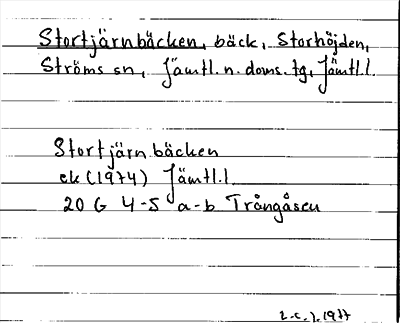 Stortjärnbäcken, bäck, Storhöjden,
Ströms sn, Jämtl. n. doms. tg, Jämtl. l.
Stortjärnbäcken
ek (1974) Jämtl. l.
20 G 4-5 a-b Trångåsen
1977